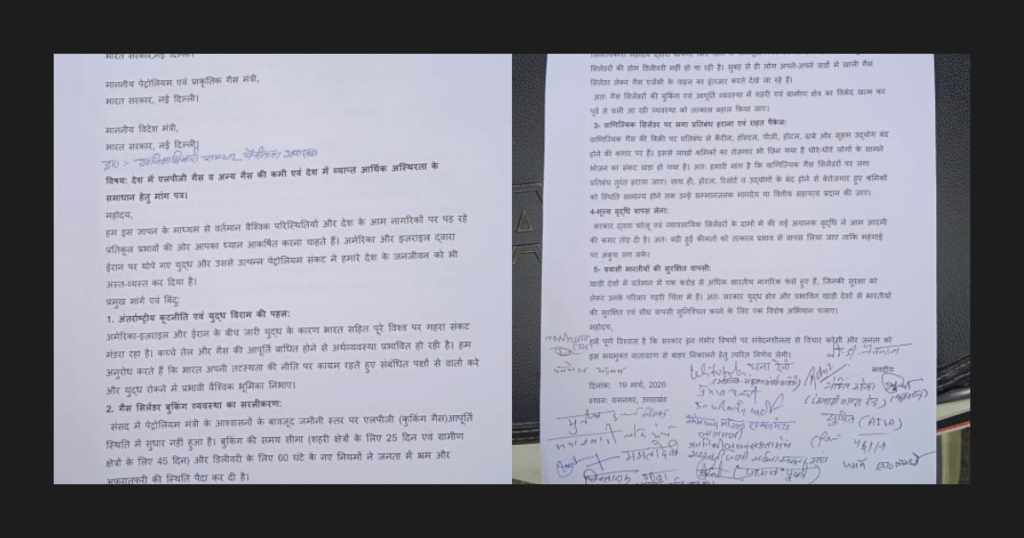 भारत सरकार,नई दिल्ली।
माननीय पेट्रोलियम एवं प्राकृतिक गैस मंत्री,
भारत सरकार, नई दिल्ली।
माननीय विदेश मंत्री,
भारत सरकार, नई दिल्ली।
विषय: देश में एलपीजी गैस व अन्य गैस की कमी एवं देश में व्याप्त आर्थिक अस्थिरता के
समाधान हेतु मांग पत्र।
महोदय,
हम इस ज्ञापन के माध्यम से वर्तमान वैश्विक परिस्थितियों और देश के आम नागरिकों पर पड़ रहे
प्रतिकूल प्रभावों की ओर आपका ध्यान आकर्षित करना चाहते हैं। अमेरिका और इज़राइल द्वारा
ईरान पर थोपे गए युद्ध और उससे उत्पन्न पेट्रोलियम संकट ने हमारे देश के जनजीवन को भी
अस्त-व्यस्त कर दिया है।
प्रमुख मांगें एवं बिंदु:
1. अंतर्राष्ट्रीय कूटनीति एवं युद्ध विराम की पहल:
अमेरिका-इज़राइल और ईरान के बीच जारी युद्ध के कारण भारत सहित पूरे विश्व पर गहरा संकट
मंडरा रहा है। कच्चे तेल और गैस की आपूर्ति बाधित होने से अर्थव्यवस्था प्रभावित हो रही है। हम
अनुरोध करते हैं कि भारत अपनी तटस्थता की नीति पर कायम रहते हुए संबंधित पक्षों से वार्ता करे
और युद्ध रोकने में प्रभावी वैश्विक भूमिका निभाए।
2. गैस सिलेंडर बुकिंग व्यवस्था का सरलीकरण:
संसद में पेट्रोलियम मंत्री के आश्वासनों के बावजूद जमीनी स्तर पर एलपीजी (कुकिंग गैस)आपूर्ति
स्थिति में सुधार नहीं हुआ है। बुकिंग की समय सीमा (शहरी क्षेत्रों के लिए 25 दिन एवं ग्रामीण
क्षेत्रों के लिए 45 दिन) और डिलीवरी के लिए 60 घंटे के नए नियमों ने जनता में भ्रम और
अफरातफरी की स्थिति पैदा कर दी है।
सिलेंडरों की होम डिलीवरी नहीं हो पा रही है। सुबह से ही लोग अपने-अपने वार्डों में खाली गैस
सिलेंडर लेकर गैस एजेंसी के वाहन का इंतजार करते देखे जा रहे हैं।
अतः गैस सिलेंडरों की बुकिंग एवं आपूर्ति व्यवस्था में शहरी एवं ग्रामीण क्षेत्र का विभेद खत्म कर
पूर्व से चली आ रही व्यवस्था को तत्काल बहाल किया जाए।
3- वाणिज्यिक सिलेंडर पर लगा प्रतिबंध हटाना एवं राहत पैकेज:
वाणिज्यिक गैस की बिक्री पर प्रतिबंध से कैंटीन, हॉस्टल, पीजी, होटल, ढाबे और सूक्ष्म उद्योग बंद
होने की कगार पर हैं। इससे लाखों श्रमिकों का रोजगार भी छिन गया है धीरे-धीरे लोगों के सामने
भोजन का संकट खड़ा हो गया है। अतः हमारी मांग है कि वाणिज्यिक गैस सिलेंडरों पर लगा
प्रतिबंध तुरंत हटाया जाए। साथ ही, होटल, रिसोर्ट व उद्योगों के बंद होने से बेरोजगार हुए श्रमिकों
को स्थिति सामान्य होने तक उन्हें सम्मानजनक मानदेय या वित्तीय सहायता प्रदान की जाए।
4-मूल्य वृद्धि वापस लेना:
सरकार द्वारा घरेलू एवं व्यावसायिक सिलेंडरों के दामों में की गई अचानक वृद्धि ने आम आदमी
की कमर तोड़ दी है। अतः बढ़ी हुई कीमतों को तत्काल प्रभाव से वापस लिया जाए ताकि महंगाई
पर अंकुश लग सके।
5- प्रवासी भारतीयों की सुरक्षित वापसी:
खाड़ी देशों में वर्तमान में एक करोड़ से अधिक भारतीय नागरिक फंसे हुए हैं, जिनकी सुरक्षा को
लेकर उनके परिवार गहरी चिंता में हैं। अतः सरकार युद्ध क्षेत्र और प्रभावित खाड़ी देशों से भारतीयों
की सुरक्षित एवं शीघ्र वापसी सुनिश्चित करने के लिए एक विशेष अभियान चलाए।
महोदय,
हमें पूर्ण विश्वास है कि सरकार इन गंभीर विषयों पर संवेदनशीलता से विचार करेगी और जनता को
इस भययुक्त वातावरण से बाहर निकालने हेतु त्वरित निर्णय लेगी।
भवदीय
दिनांक: 19 मार्च, 2026
स्थान: रामनगर, उत्तराखंड
ममता देवी